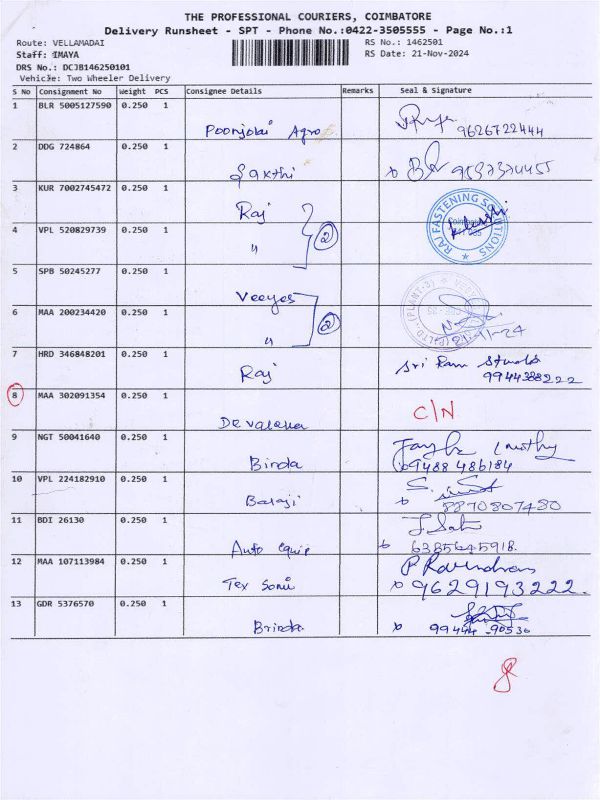 THE PROFESSIONAL COURIERS, COIMBATORE
Delivery Runsheet - SPT - Phone No.:0422-3505555 - Page No.:1
Route: VELLAMADAI RS No.: 1462501
Staff: IMAYA RS Date: 21-Nov-2024
DRS No.: DCJB146250101
Vehicle: Two Wheeler Delivery
S No Consignment No Weight PCS Consignee Details Remarks Seal & Signature
1 BLR 5005127590 0.250 1
Poonjolai Agro 9626722444
2 DDG 724864 0.250 1
Sakthi
3 KUR 7002745472 0.250 1
Raj
RAJ FASTENING SOLUTIONS
4 VPL 520829739 0.250 1
" 2
5 SPB 50245277 0.250 1
Veeyes
(PLANT-3)
6 MAA 200234420 0.250 1
" 2
21-11-24
7 HRD 346848201 0.250 1
Raj Sri Ram Studio
9944388222
8 MAA 302091354 0.250 1
C/N
9 NGT 50041640 0.250 1
Binda 09488 486184
10 VPL 224182910 0.250 1
Balaji 8870807480
11 BDI 26130 0.250 1
Auto equip 6385645918
12 MAA 107113984 0.250 1
P. Ravendran
Tex Soni 9629193222
13 GDR 5376570 0.250 1
Brinda 99444 90536